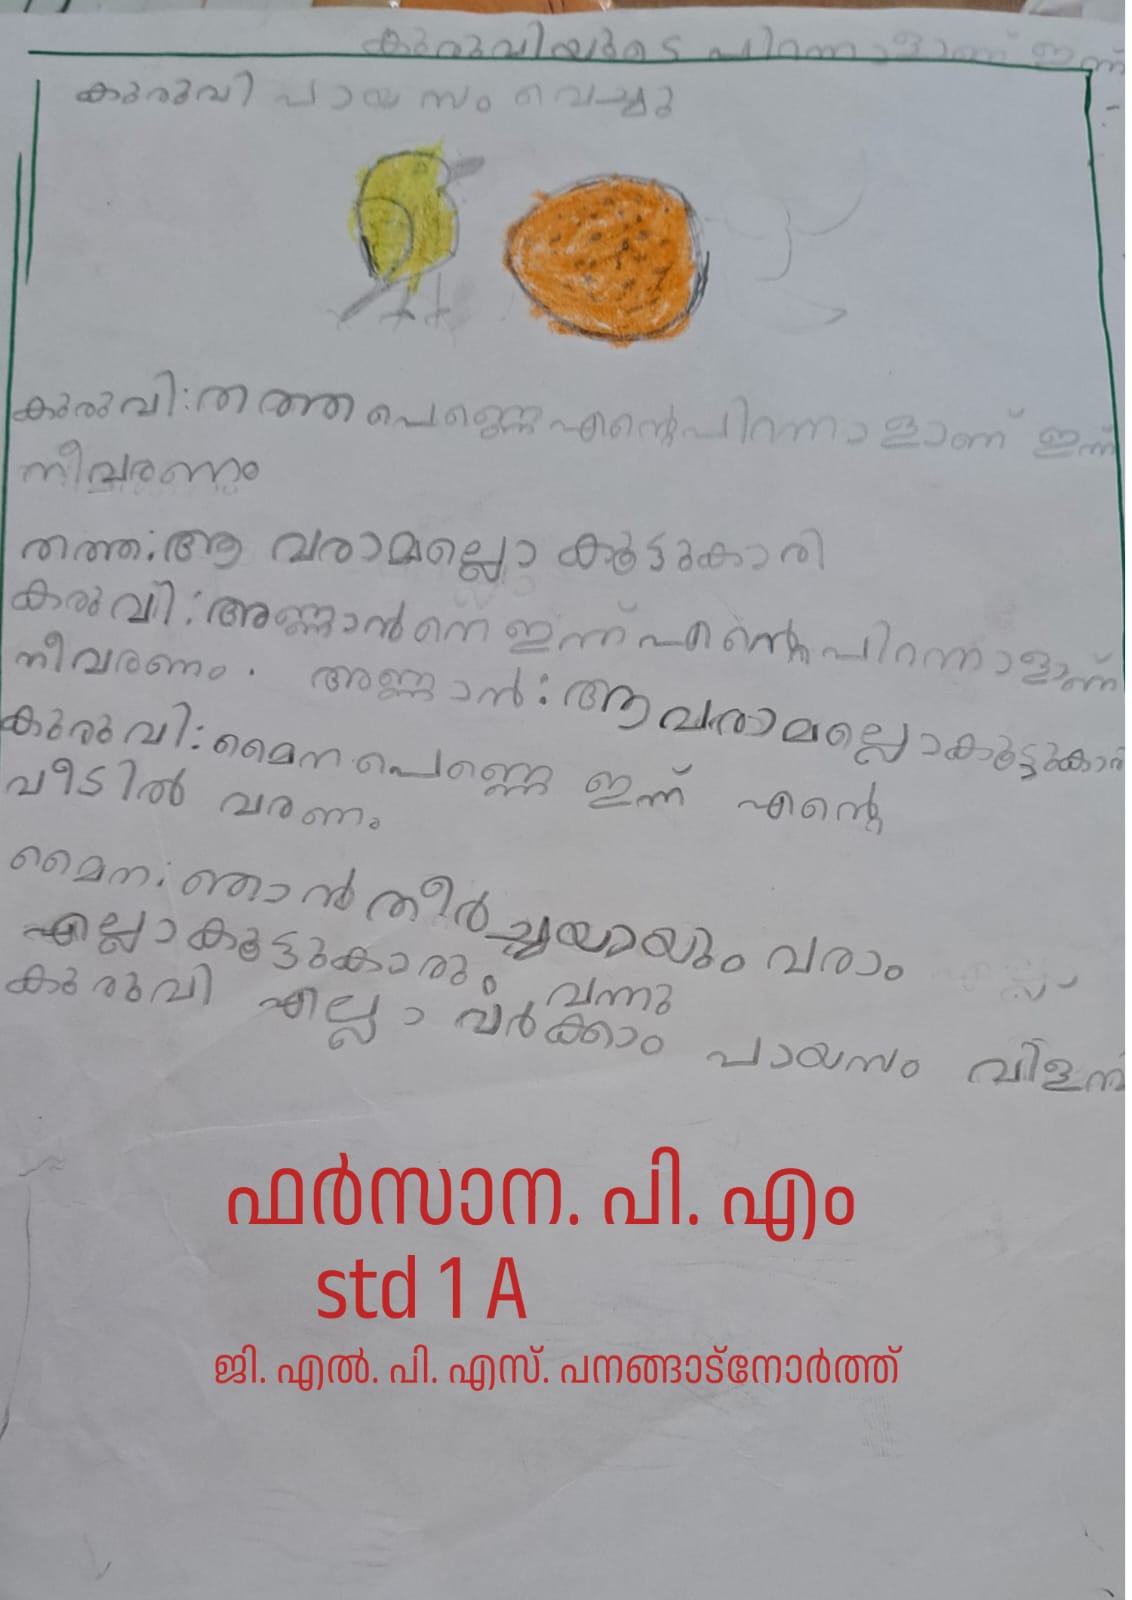 കുരുവിയുടെ പിറന്നാളാണ് ഇന്ന്
കുരുവി പായസം വെച്ചു
കുരുവി:തത്ത പെണ്ണെ എന്റെ പിറന്നാളാണ് ഇന്ന്
നീവരണം
തത്ത:ആ വരാമല്ലൊ കൂട്ടുകാരി
കരുവി:അണ്ണാൻനെ ഇന്ന് എന്റെ പിറന്നാളാണ്
നീവരണം. അണ്ണാൻ:ആ വരാമല്ലൊകൂട്ടുകാരി
കുരുവി:മൈന പെണ്ണെ ഇന്ന് എന്റെ
വീടിൽ വരണം
മൈന:ഞാൻ തീർച്ചയായും വരാം
എല്ലാ കൂട്ടുകാരും വന്നു
കുരുവി എല്ലാ വർക്കാം പായസം വിളന്
ഫർസാന. പി. എം
std 1 A
ജി. എൽ. പി. എസ്. പനങ്ങാട്നോർത്ത്